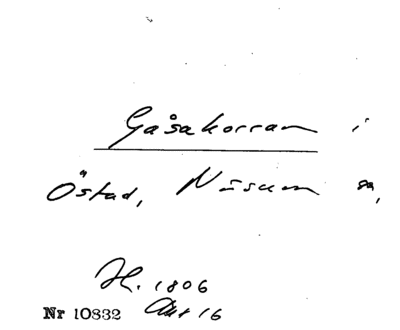 Gåsakorran i
Östad, Näsum sn,
H. 1806
Nr 10832 Akt 16